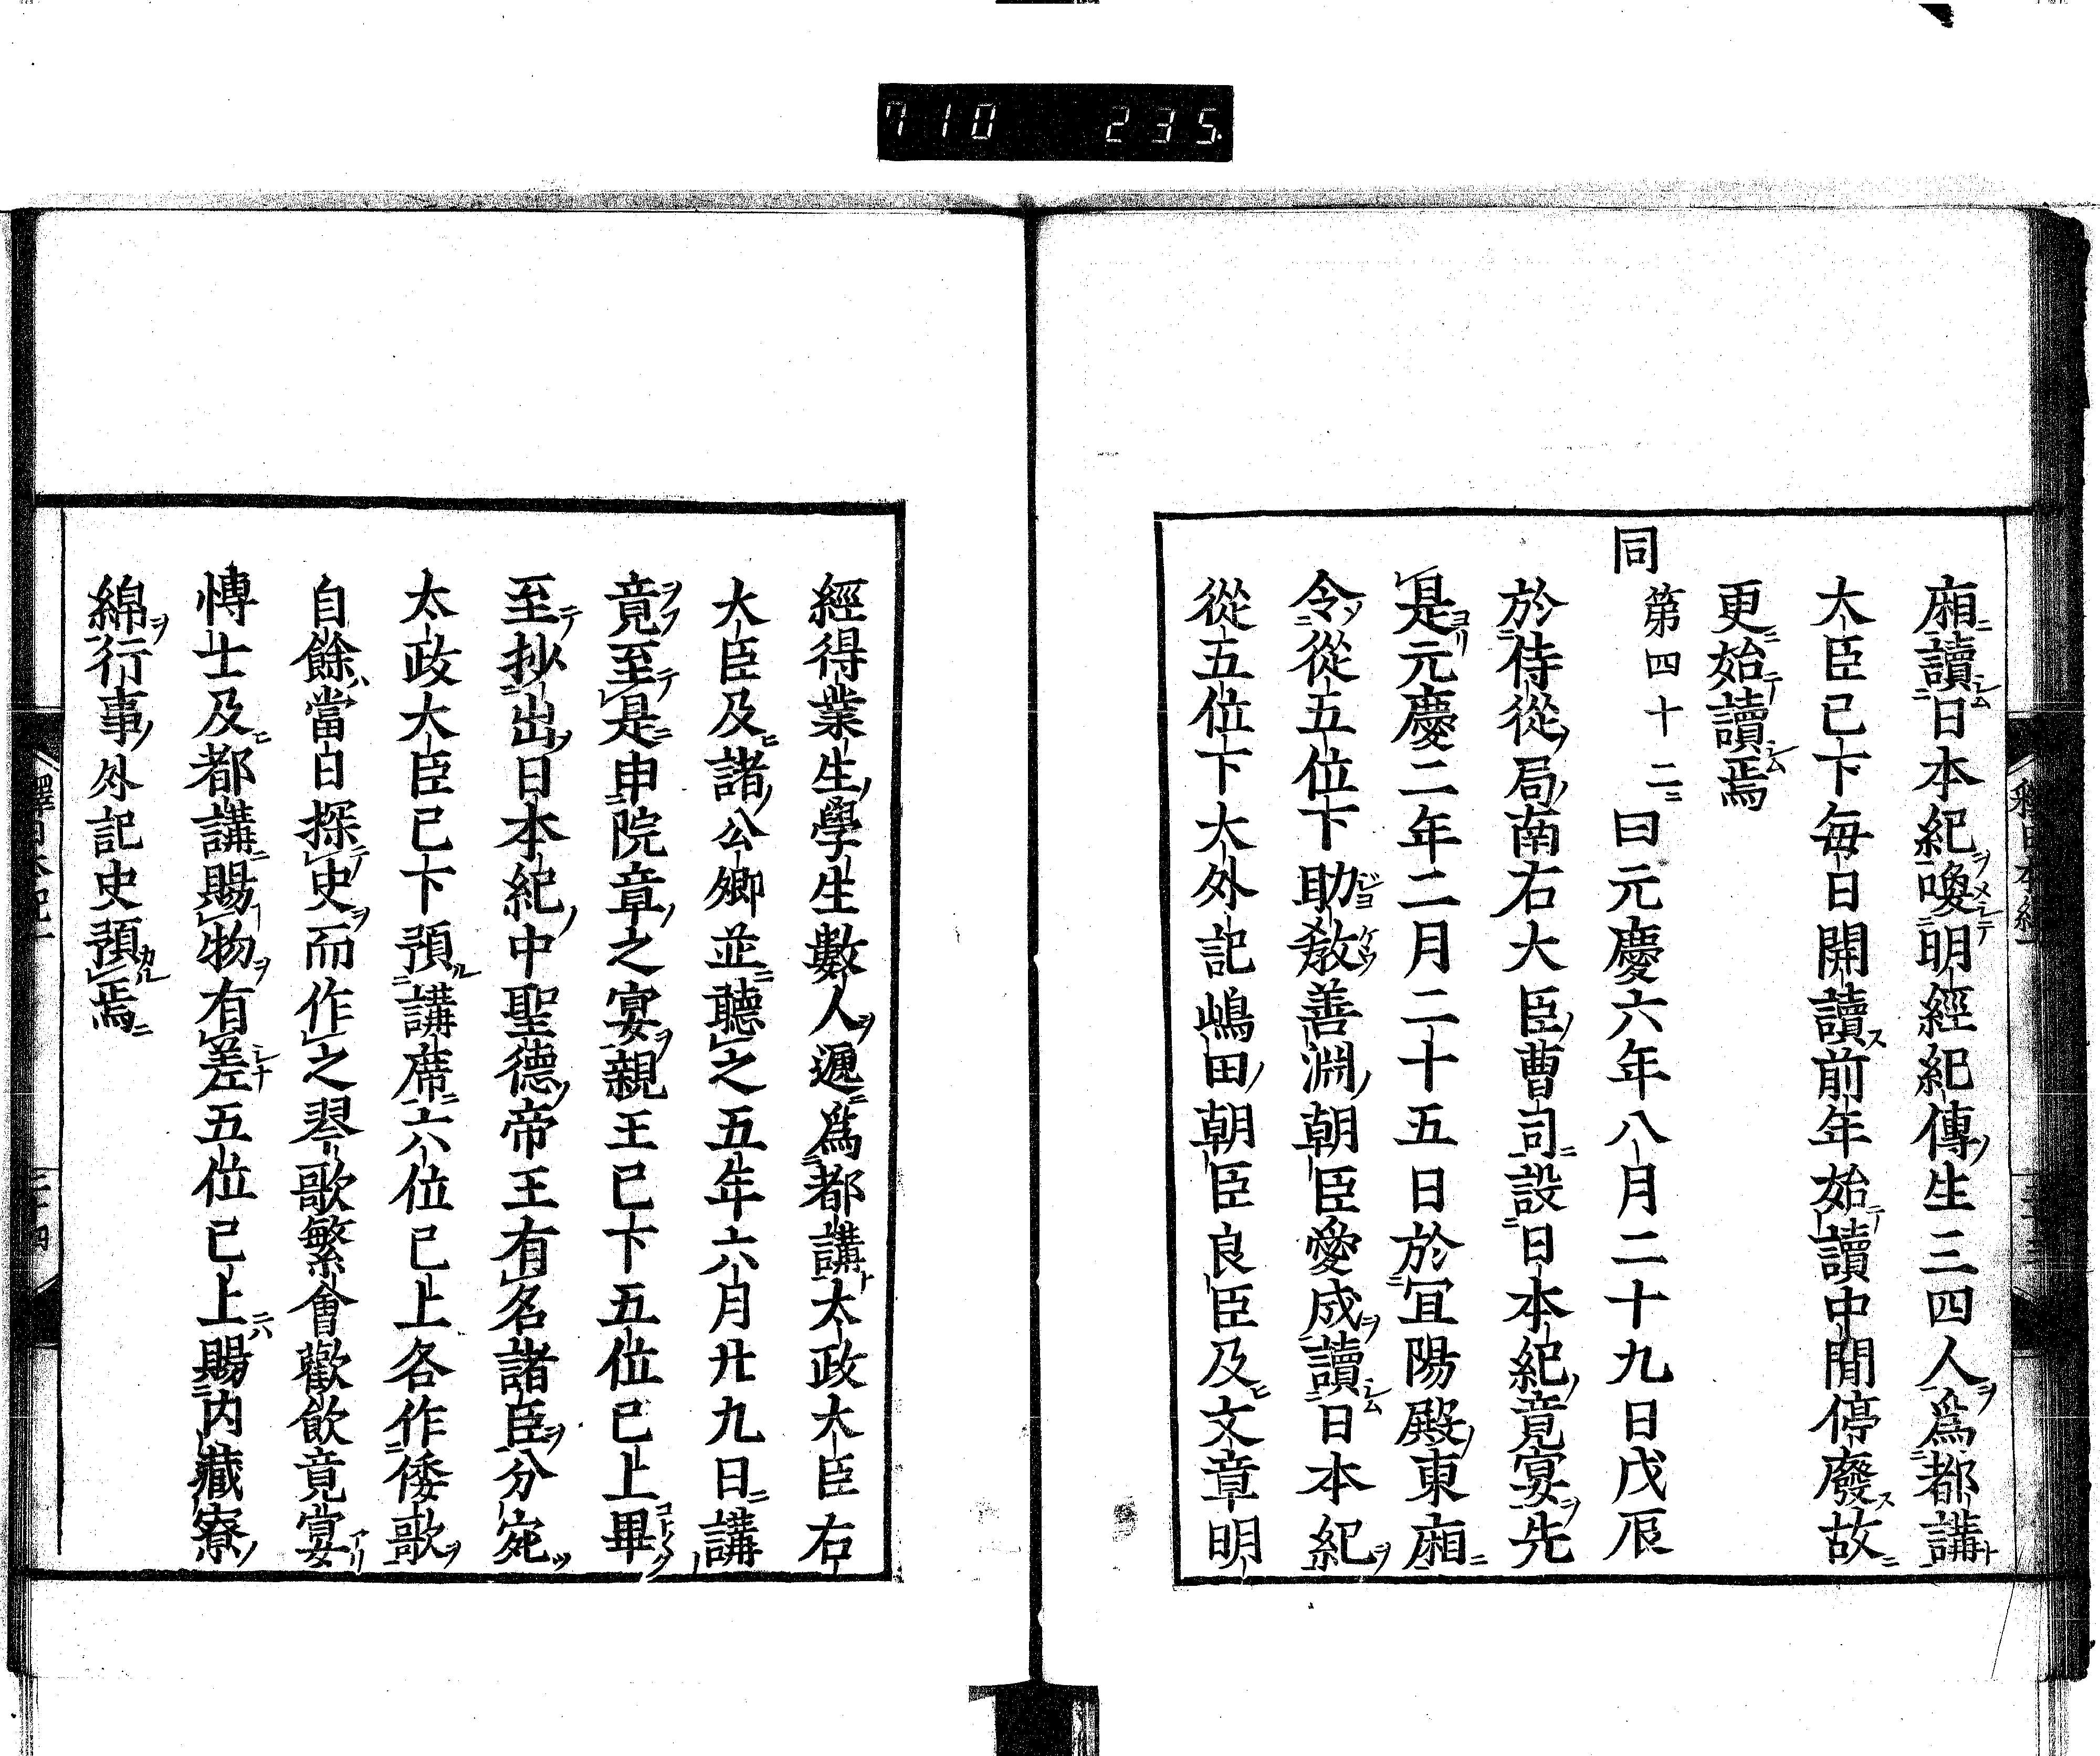 710 235.
廂讀日本紀喚明經紀傳生三四人爲都講
大臣已下每日開讀前年始讀中間停廢故
更始讀焉
同第四十二曰元慶六年八月二十九日戊辰
於侍從局南右大臣曹司設日本紀竟宴先
是元慶二年二月二十五日於宜陽殿東廂
令從五位下助教善淵朝臣愛成讀日本紀
從五位下大外記嶋田朝臣良臣及文章明
經得業生學生數人遞爲都講太政大臣右
大臣及諸公卿並聽之五年六月廿九日講
竟至是申院章之宴親王已下五位已上畢
至抄出日本紀中聖德帝王有名諸臣分宛
太政大臣已下預講席六位已上各作倭歌
自餘當日探史而作之琴歌繁會歡飲竟宴
博士及都講賜物有差五位已上賜内藏寮
綿行事外記史預焉